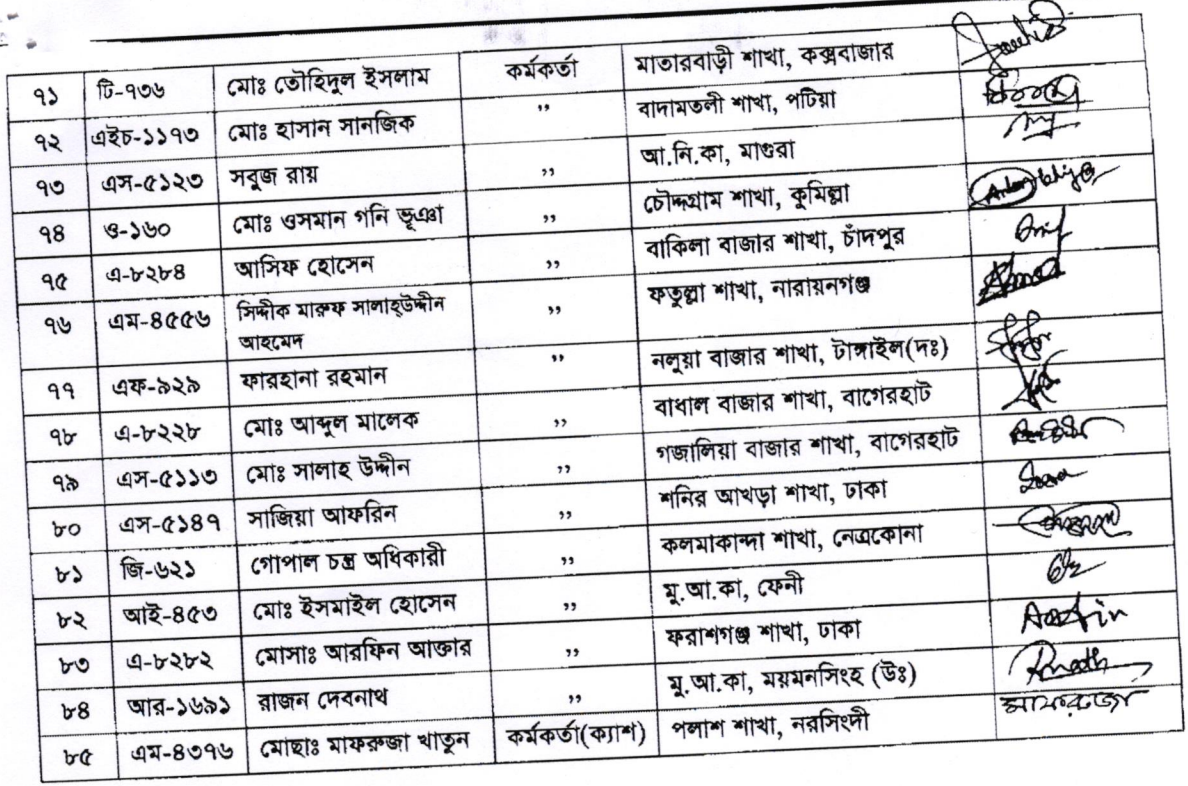 ৭১ টি-৭৩৬ মোঃ তৌহিদুল ইসলাম কর্মকর্তা মাতারবাড়ী শাখা, কক্সবাজার
৭২ এইচ-১১৭৩ মোঃ হাসান সানজিক ,, বাদামতলী শাখা, পটিয়া
৭৩ এস-৫১২৩ সবুজ রায় ,, আ.নি.কা, মাগুরা
৭৪ ও-১৬০ মোঃ ওসমান গনি ভূঞা ,, চৌদ্দগ্রাম শাখা, কুমিল্লা
৭৫ এ-৮২৮৪ আসিফ হোসেন ,, বাকিলা বাজার শাখা, চাঁদপুর
৭৬ এম-৪৫৫৬ সিদ্দীক মারুফ সালাহ্উদ্দীন ,, ফতুল্লা শাখা, নারায়নগঞ্জ
আহমেদ
৭৭ এফ-৯২৯ ফারহানা রহমান ,, নলুয়া বাজার শাখা, টাঙ্গাইল(দঃ)
৭৮ এ-৮২২৮ মোঃ আব্দুল মালেক ,, বাধাল বাজার শাখা, বাগেরহাট
৭৯ এস-৫১১৩ মোঃ সালাহ উদ্দীন ,, গজালিয়া বাজার শাখা, বাগেরহাট
৮০ এস-৫১৪৭ সাজিয়া আফরিন ,, শনির আখড়া শাখা, ঢাকা
৮১ জি-৬২১ গোপাল চন্দ্র অধিকারী ,, কলমাকান্দা শাখা, নেত্রকোনা
৮২ আই-৪৫৩ মোঃ ইসমাইল হোসেন ,, মু.আ.কা, ফেনী
৮৩ এ-৮২৮২ মোসাঃ আরফিন আক্তার ,, ফরাশগঞ্জ শাখা, ঢাকা
৮৪ আর-১৬৯১ রাজন দেবনাথ ,, মু.আ.কা, ময়মনসিংহ (উঃ)
৮৫ এম-৪৩৭৬ মোছাঃ মাফরুজা খাতুন কর্মকর্তা(ক্যাশ) পলাশ শাখা, নরসিংদী মাফরুজা